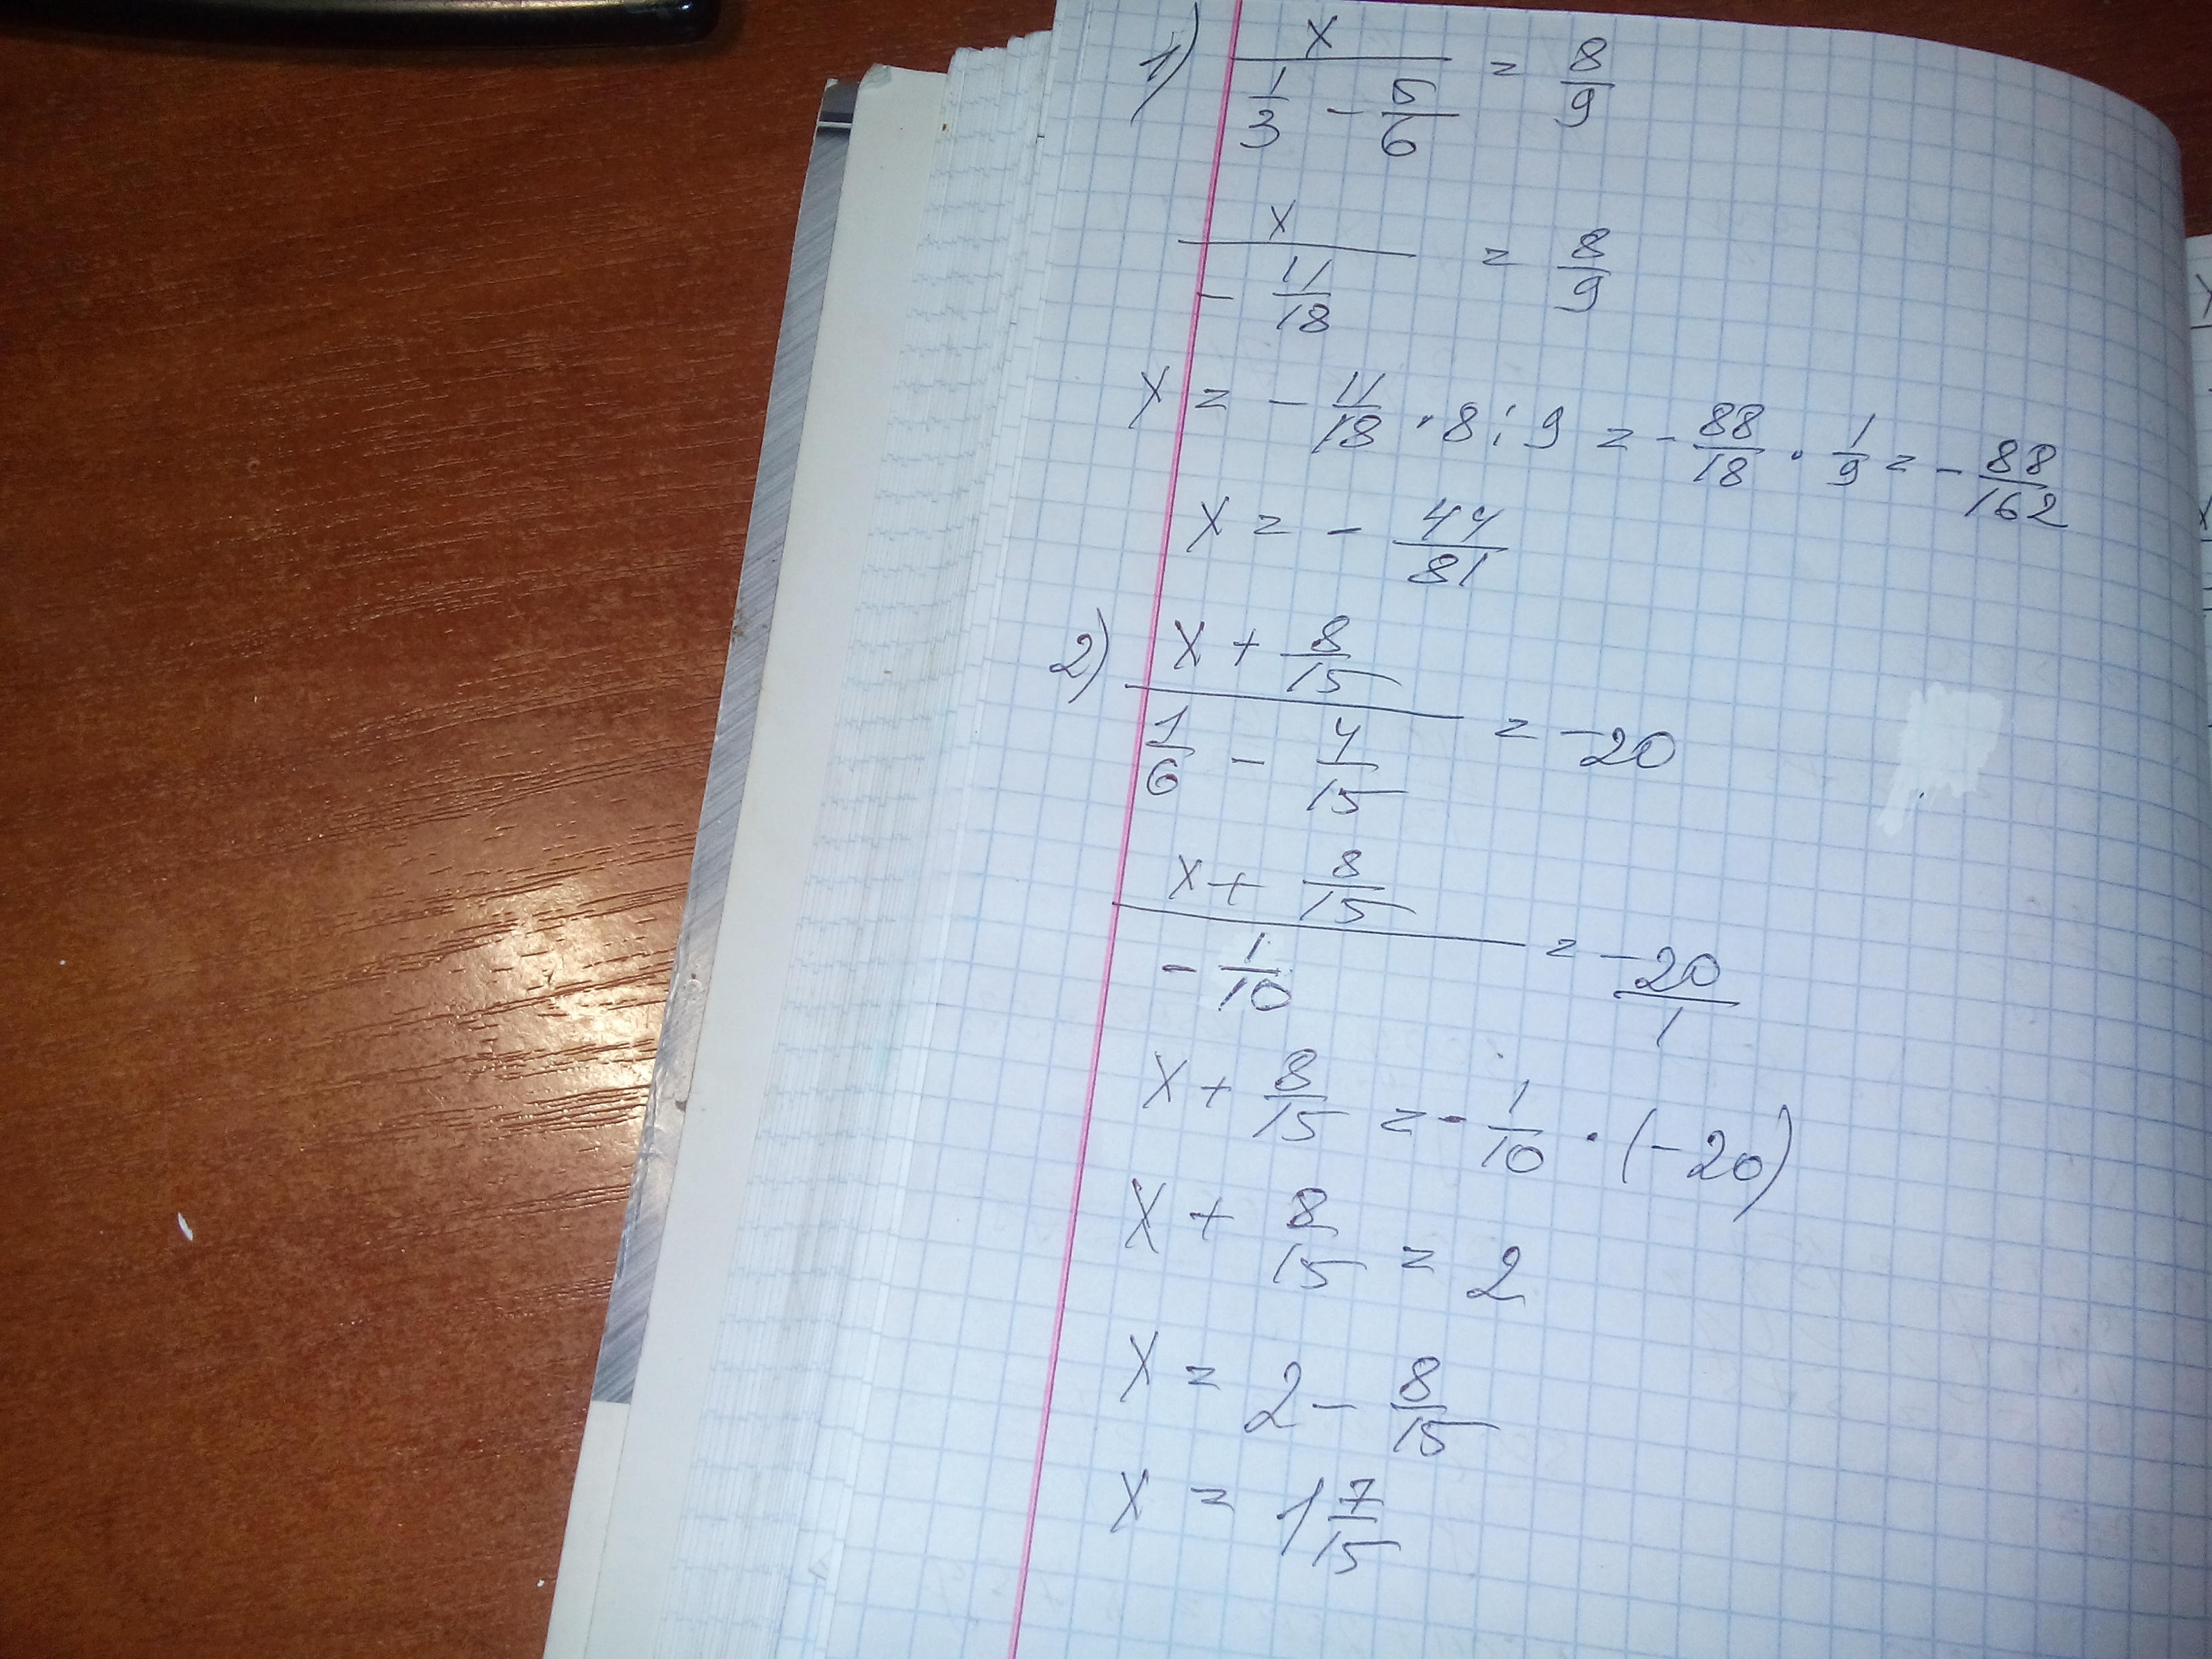 1) x / (1/3 - 5/6) = 8/9
x / (- 11/18) = 8/9
x = - 11/18 · 8 : 9 = - 88/18 · 1/9 = - 88/162
x = - 44/81
2) (x + 8/15) / (1/6 - 4/15) = -20
(x + 8/15) / (- 1/10) = -20/1
x + 8/15 = - 1/10 · (-20)
x + 8/15 = 2
x = 2 - 8/15
x = 1 7/15